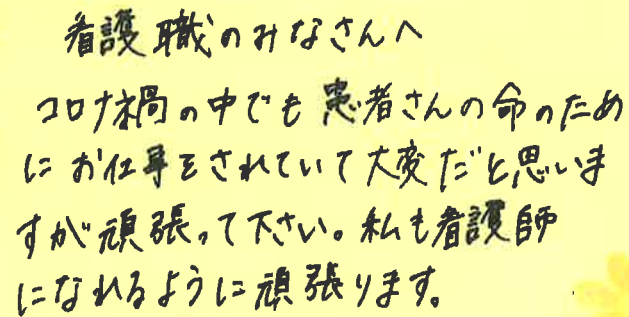 看護職のみなさんへ
コロナ禍の中でも患者さんの命のため
にお仕事をされていて大変だと思いま
すが頑張って下さい。私も看護師
になれるように頑張ります。